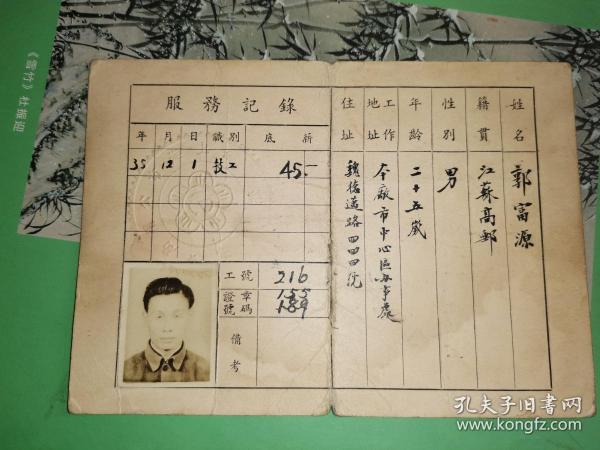 姓名 郭富源
籍貫 江蘇高郵
性別 男
年齡 二十五歲
工作地址 本廠市中心區办事處
住址 魏德邁路四四四號
服務記錄
年 月 日 職別 底薪
35 12 1 技工 45.-
工號 216
證章號碼 155
189
備考
《雪竹》 杜報迎
孔夫子旧书网
www.kongfz.com